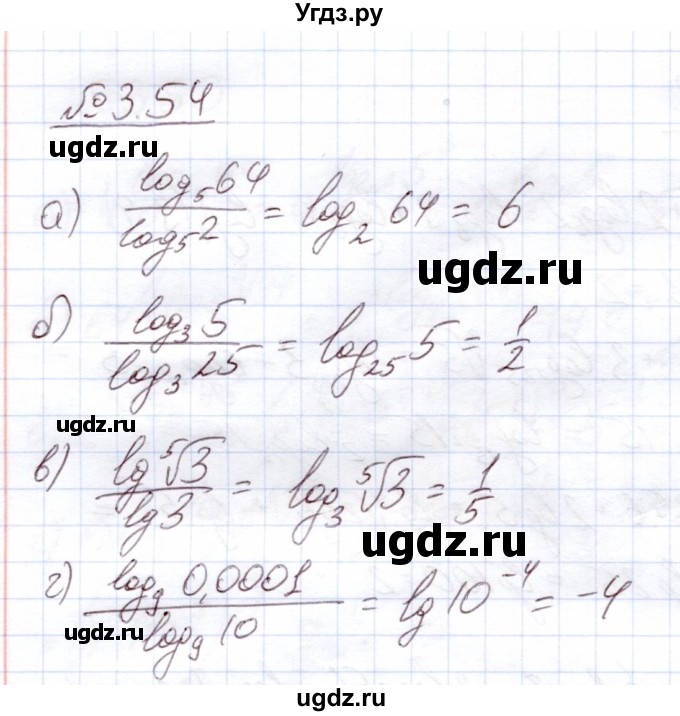 Угдз.ру
№ 3.54
ugdz.ru
а) log₅64 / log₅2 = log₂ 64 = 6
ugdz.ru
б) log₃5 / log₃25 = log₂₅5 = 1/2
ugdz.ru
в) lg ⁵√3 / lg3 = log₃ ⁵√3 = 1/5
ugdz.ru
г) log₉ 0,0001 / log₉10 = lg 10⁻⁴ = -4
ugdz.ru
ugdz.ru